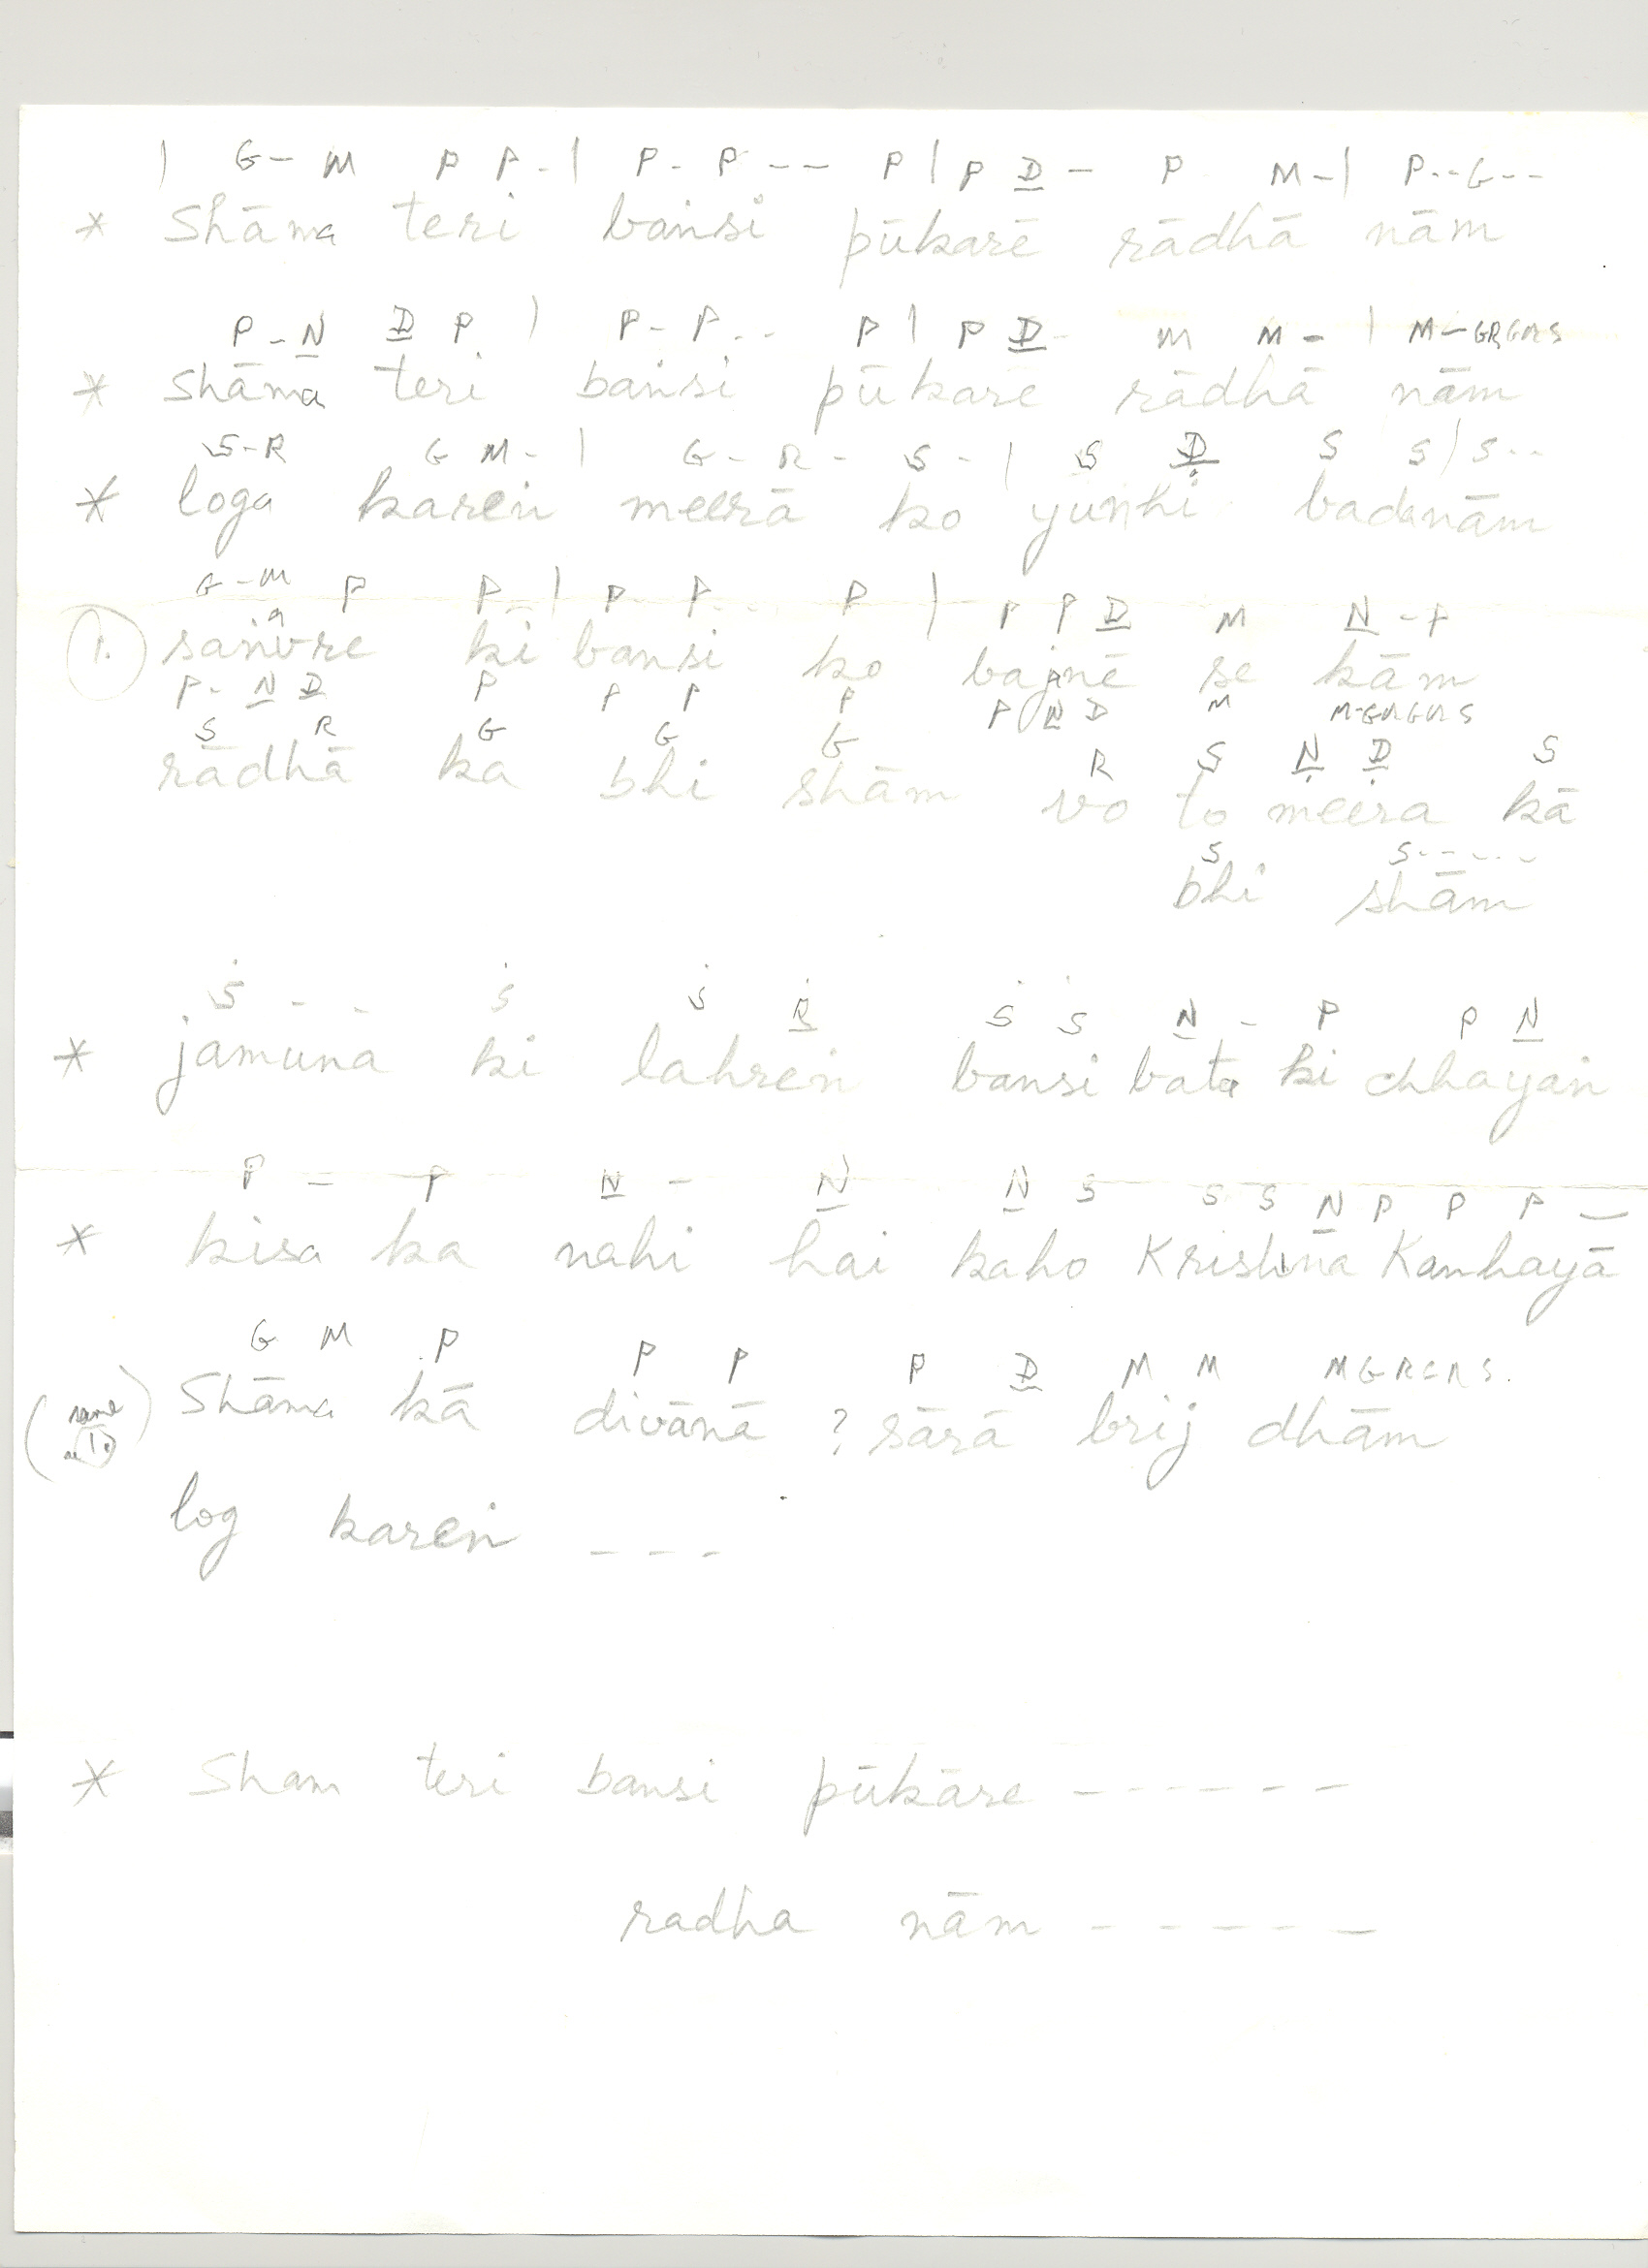 | G – M P P - | P - P - - - P | P D̲ – P M – | P - - G - -
* Shāma teri bansi pūkarē rādhā nām
P – N̲ D̲ P | P – P - - P | P D̲ - M M – | M – GRGRS
* Shāma teri bansi pūkarē rādhā nām
S – R G M - | G - R - S - | S D̲̣ S S | S - -
* loga karen meerā ko yunhi badanām
G - M P P | P - P - - P | P P D̲ M N̲ - P
1. sanvre ki bansi ko bajnē se kām
P - N̲ D̲ P P P P P N̲ D̲ M M-GRGRS
S R G G G R S Ṇ̲ Ḍ̲ S
rādhā ka bhi shām vo to meera kā
S S - - - - -
bhi shām
Ṡ - - Ṡ Ṡ Ṙ̲ Ṡ Ṡ N̲ - P P N̲
* jamunā ki lahren bansi bata ki chhayan
P – P N̲ – N̲ N̲ S S S N̲ P P P –
* kisa ka nahi hai kaho Krishna Kanhayā
G M P P P P D̲ M M MGRGRS.
(same as 1.) Shāma kā divānā ? sārā brij dhām
log karen - - -
* Sham teri bansi pūkāre - - - - - -
radha nām - - - - - -